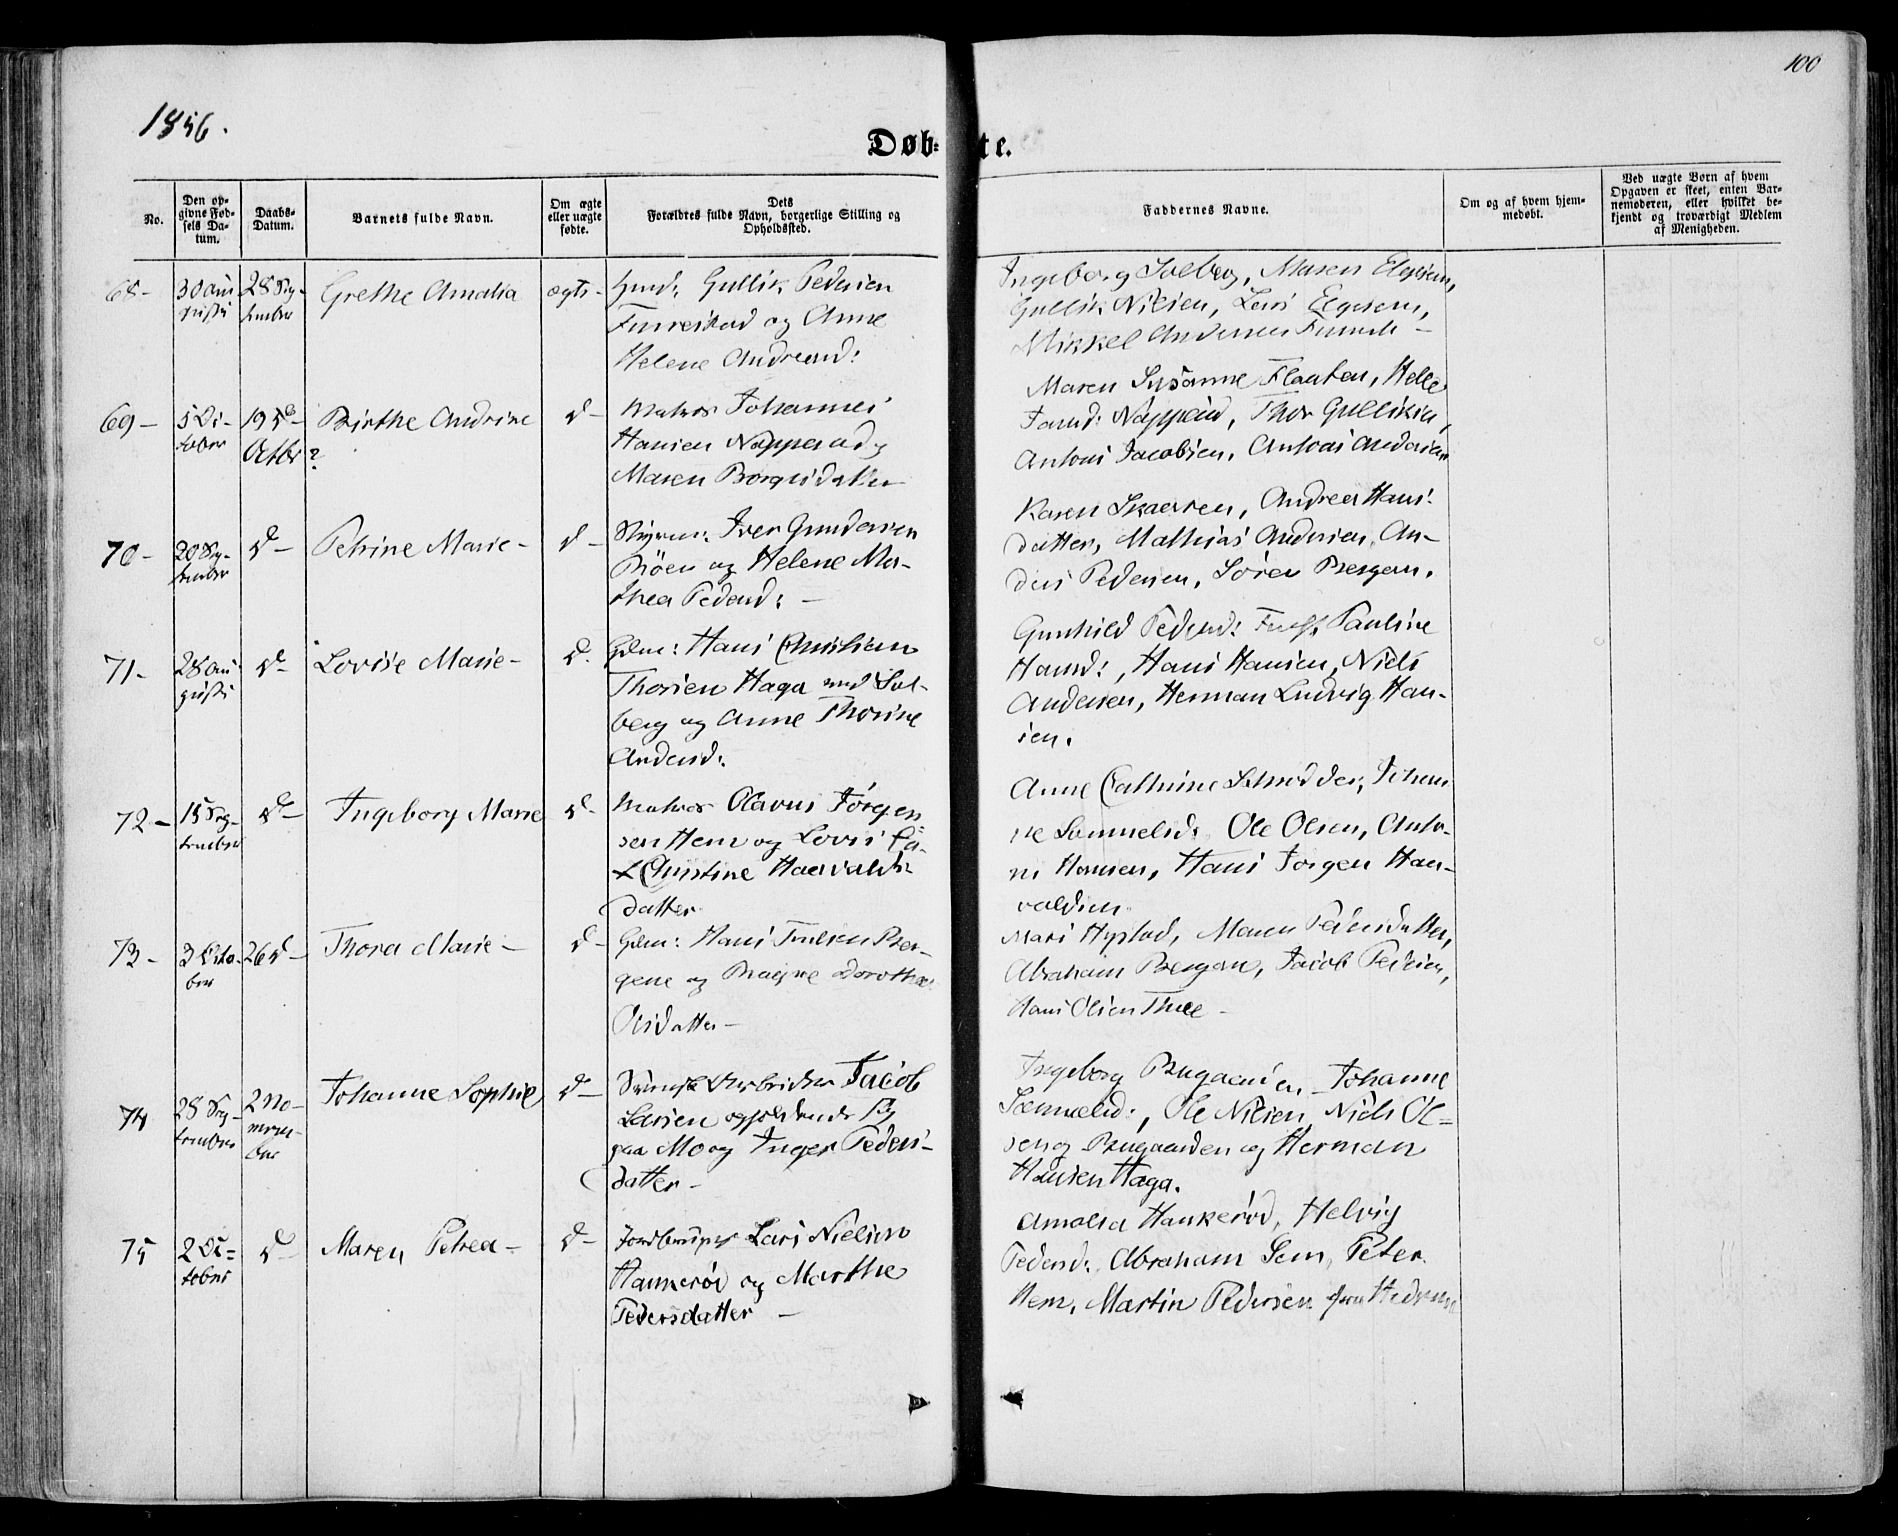 100
1856.
Døb-te.
No.
Den op-
givne Fød-
sels Da-
tum.
Daabs-
Datum.
Barnets fulde Navn.
Om ægte
eller uægte
fødte.
Dets
Forældres fulde Navn, borgerlige Stilling og
Opholdssted.
Faddernes Navne.
Om og af hvem hjem-
medøbt.
Ved uægte Børn af hvem
Opgaven er skeet, enten Bar-
nemoderen, eller hvilket be-
kjendt og troværdigt Medlem
af Menigheden.
68-
30 Au
gusti
28 Sep-
tember
Grethe Amalia
ægte-
Gullik Pedersen
og Anne
Helene Andreasd:
Ingeborg Solberg, Maren Elgesem,
Gullik Nilsen, Lars Elgesem,
Mikkel Andersen
69-
5 Oc-
tober
19 d-
Octbr ?
Birthe Andrine
d-
Matros Johannes
Hansen Napperød og
Maren Borgersdatter
Maren Susanne Flauten, Helle
Napperød, Thor Gulliksen,
Antoni Jacobsen, Antoni Andersen
70-
20 Sep-
tember
d-
Petrine Marie-
d-
Styrm: Iver Gundersen
Böen og Helene Ma-
thea Pedersd: -
Karen Skaerren, Andrea Hans-
datter, Mathias Andersen, An-
ders Pedersen, Sören Bergan.
71-
28 Au-
gusti
d-
Lovise Marie-
d.
Gdm: Hans Christian
Thorsen Haga ved Sol-
berg og Anne Thorine
Andersd:
Gunhild Pedersd: Pauline
Hansd:, Hans Hansen, Niels
Andersen, Herman Ludvig Han-
sen.
72-
15 Sep-
tember
d-
Ingeborg Marie
d-
Matros Olavus Jörgen
sen Hem og Lovis Ca-
Christine Haavalds-
datter
Anne Cathrine Schrødder, Johan
ne Samuelsd: Ole Olsen, Anto-
ni Hansen, Hans Jørgen Haa-
valdsen
73-
3 Octo-
ber
26 d-
Thora Marie-
d-
Gdm: Hans Ber-
gene og Dorothea
Olsdatter-
Mari Hystad, Maren Pedersdatter,
Abraham Bergan, Jacob Pedersen,
Hans Olsen -
74
28 Sep-
tember
2 No-
vem-
ber
Johanne Sophie
d-
Svensk Jacob
Larsen
paa Mo og Inger Peders-
datter-
Ingeborg Johanne
Samuelsd:, Ole Nilsen, Niels Ol-
sen og Herman
Hansen Haga.
75
2 Oc-
tober
d-
Maren Petrea-
d-
Jordbruger Lars Nielsen
Hankerød og Marthe
Pedersdatter -
Amalia Hankerød, Helvig
Pedersd: Abraham Sem, Peter
Hem, Martin Pedersen fra Hedrum